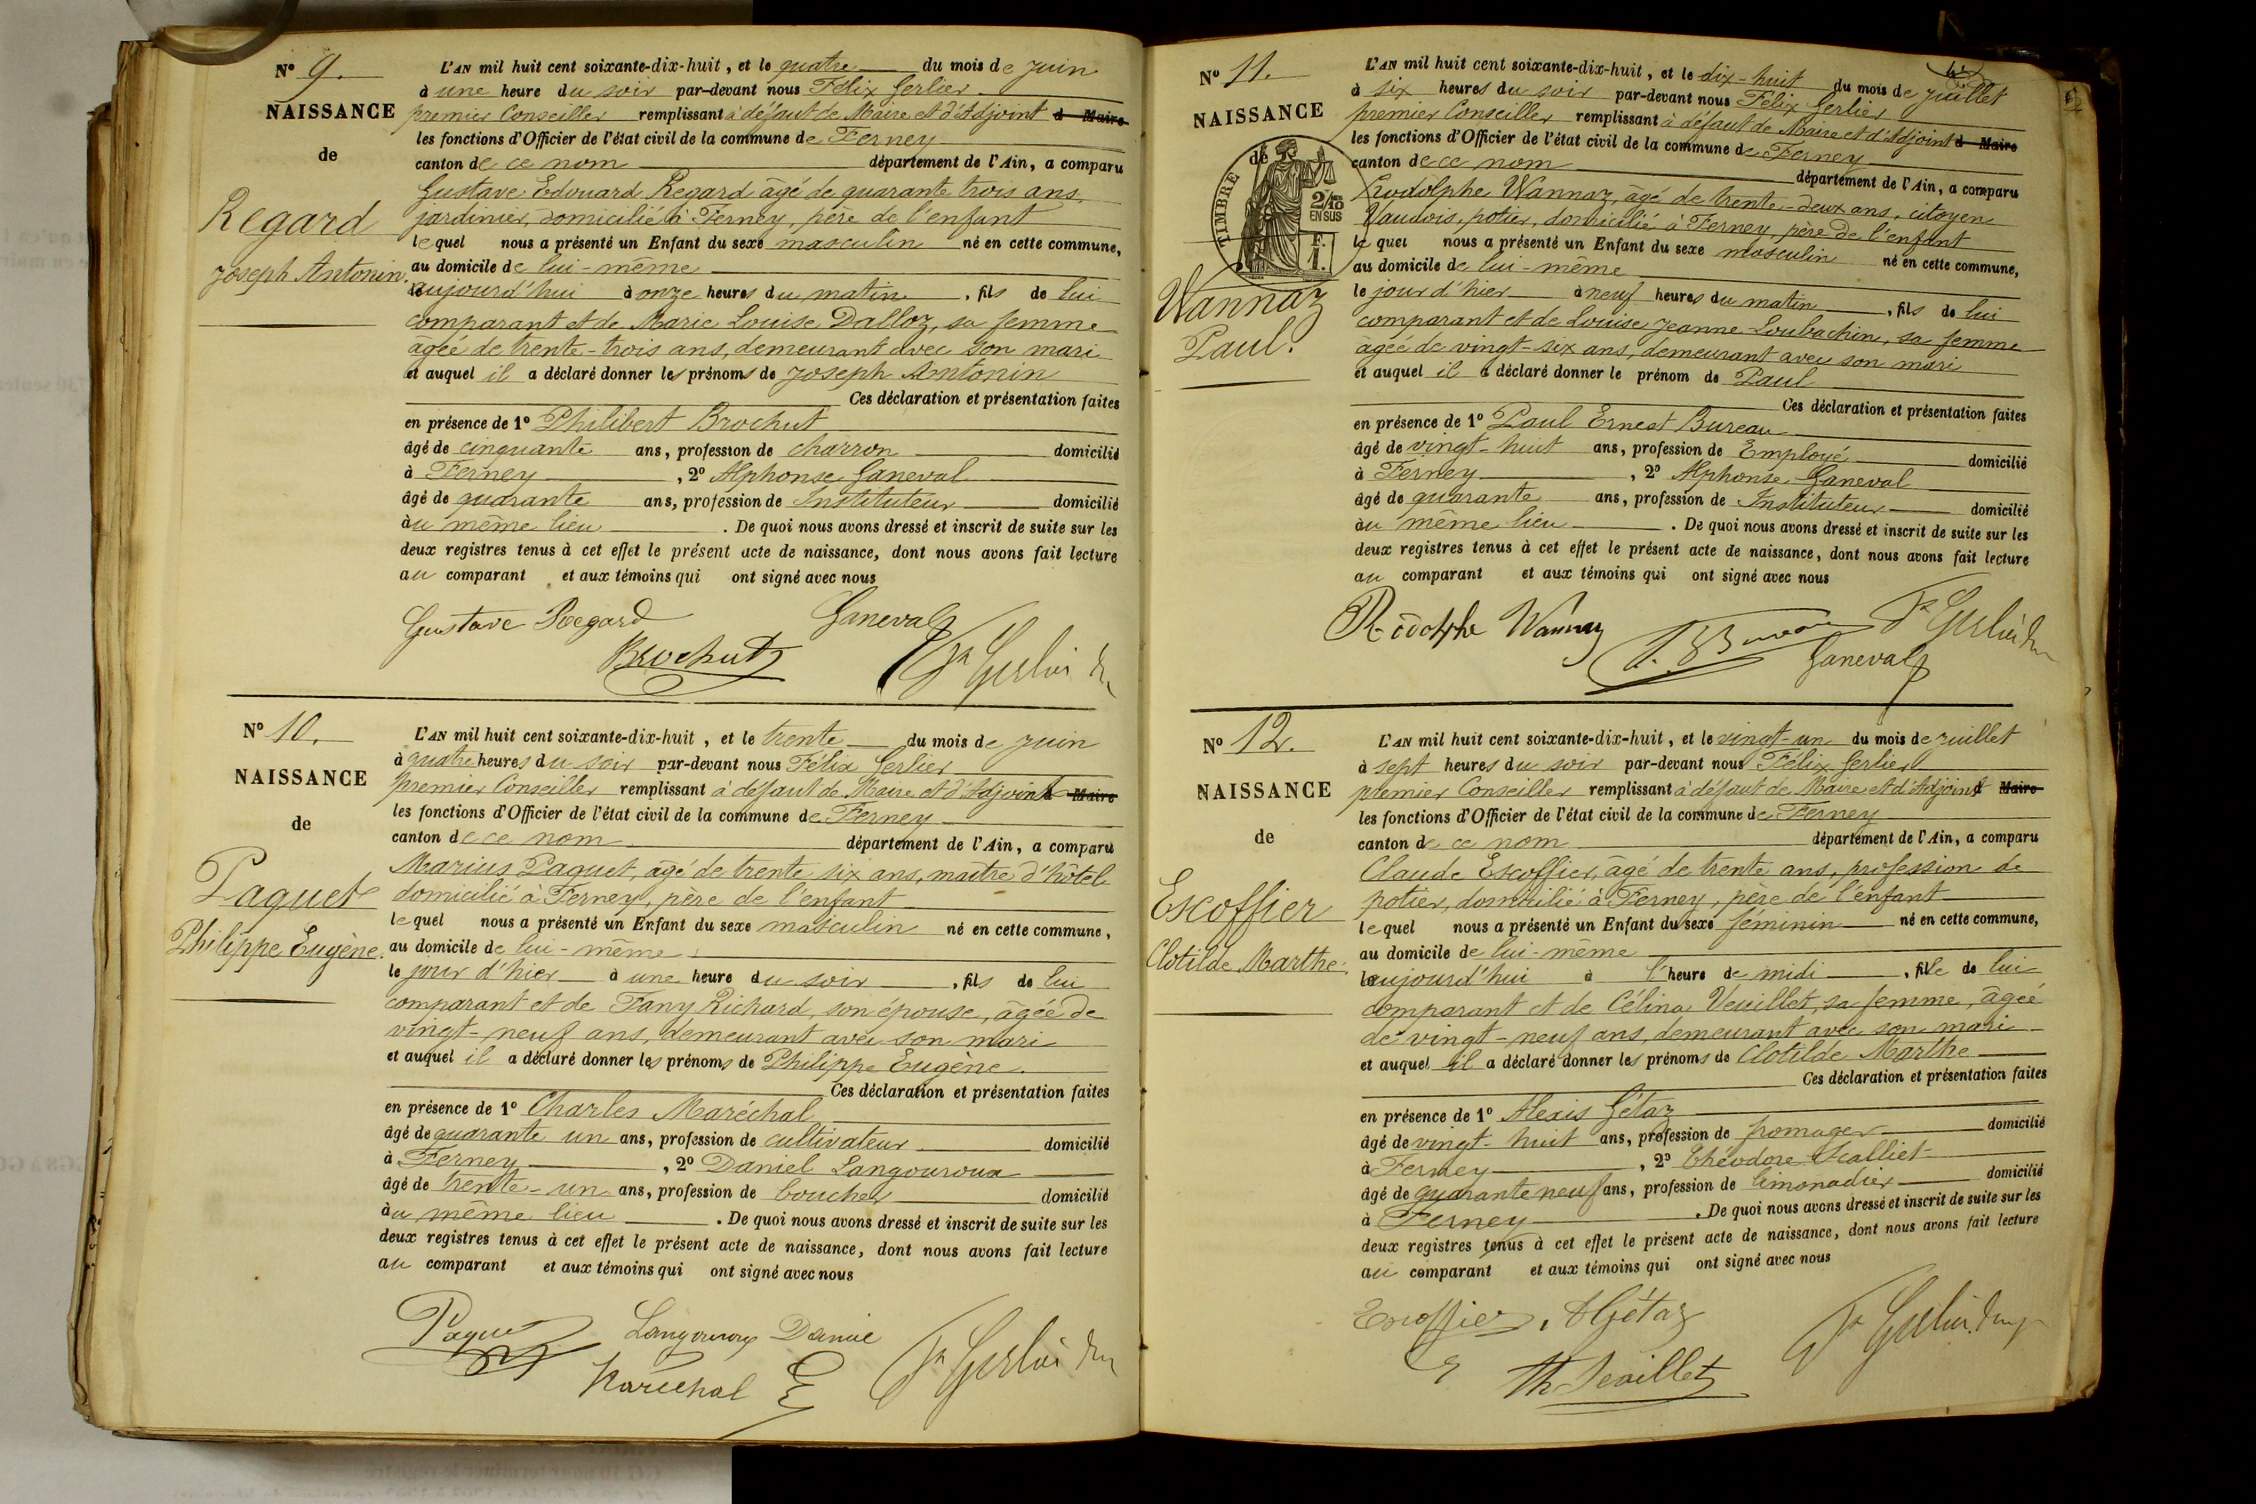 N° 9.
NAISSANCE
de
Regard
Joseph Antonin.
L'AN mil huit cent soixante-dix-huit, et le quatre du mois de juin
à une heure du soir par-devant nous Félix Gerlier
premier Conseiller remplissant à défaut de Maire et d'Adjoint d Maire
les fonctions d'Officier de l'état civil de la commune de Ferney
canton de ce nom département de l'Ain, a comparu
Gustave Edouard Regard âgé de quarante trois ans,
jardinier, domicilié à Ferney, père de l'enfant
lequel nous a présenté un Enfant du sexe masculin né en cette commune,
au domicile de lui-même
aujourd'hui à onze heures du matin, fils de lui
comparant et de Marie Louise Dalloz, sa femme
âgée de trente-trois ans, demeurant avec son mari
et auquel il a déclaré donner les prénoms de Joseph Antonin
Ces déclaration et présentation faites
en présence de 1° Philibert Brochut
âgé de cinquante ans, profession de charron domicilié
à Ferney, 2° Alphonse Ganeval
âgé de quarante ans, profession de Instituteur domicilié
au même lieu. De quoi nous avons dressé et inscrit de suite sur les
deux registres tenus à cet effet le présent acte de naissance, dont nous avons fait lecture
au comparant et aux témoins qui ont signé avec nous
Gustave Regard Ganeval
Brochut Fx Gerlier
N° 10.
NAISSANCE
de
Paquet
Philippe Eugène.
L'AN mil huit cent soixante-dix-huit, et le trente du mois de juin
à quatre heures du soir par-devant nous Félix Gerlier
premier Conseiller remplissant à défaut de Maire et d'Adjoint d Maire
les fonctions d'Officier de l'état civil de la commune de Ferney
canton de ce nom département de l'Ain, a comparu
Marius Paquet, âgé de trente six ans, maître d'hôtel
domicilié à Ferney, père de l'enfant
lequel nous a présenté un Enfant du sexe masculin né en cette commune,
au domicile de lui-même
le jour d'hier à une heure du soir, fils de lui
comparant et de Fany Richard, son épouse, âgée de
vingt-neuf ans, demeurant avec son mari
et auquel il a déclaré donner les prénoms de Philippe Eugène.
Ces déclaration et présentation faites
en présence de 1° Charles Maréchal
âgé de quarante un ans, profession de cultivateur domicilié
à Ferney, 2° Daniel Langouroux
âgé de trente-un ans, profession de boucher domicilié
au même lieu. De quoi nous avons dressé et inscrit de suite sur les
deux registres tenus à cet effet le présent acte de naissance, dont nous avons fait lecture
au comparant et aux témoins qui ont signé avec nous
Paquet Langouroux Daniel
Maréchal Fx Gerlier
N° 11.
NAISSANCE
de
TIMBRE
2/10 EN SUS
F. 1.
Wannaz
Paul.
L'AN mil huit cent soixante-dix-huit, et le dix-huit du mois de juillet
à six heures du soir par-devant nous Félix Gerlier
premier Conseiller remplissant à défaut de Maire et d'Adjoint d Maire
les fonctions d'Officier de l'état civil de la commune de Ferney
canton de ce nom département de l'Ain, a comparu
Rodolphe Wannaz, âgé de trente-deux ans, citoyen
Vaudois, potier, domicilié à Ferney, père de l'enfant
lequel nous a présenté un Enfant du sexe masculin né en cette commune,
au domicile de lui-même
le jour d'hier à neuf heures du matin, fils de lui
comparant et de Louise Jeanne Loubachin, sa femme
âgée de vingt-six ans, demeurant avec son mari
et auquel il a déclaré donner le prénom de Paul
Ces déclaration et présentation faites
en présence de 1° Paul Ernest Bureau
âgé de vingt-huit ans, profession de Employé domicilié
à Ferney, 2° Alphonse Ganeval
âgé de quarante ans, profession de Instituteur domicilié
au même lieu. De quoi nous avons dressé et inscrit de suite sur les
deux registres tenus à cet effet le présent acte de naissance, dont nous avons fait lecture
au comparant et aux témoins qui ont signé avec nous
Rodolphe Wannaz Bureau Fx Gerlier
Ganeval
N° 12.
NAISSANCE
de
Escoffier
Clotilde Marthe.
L'AN mil huit cent soixante-dix-huit, et le vingt-un du mois de juillet
à sept heures du soir par-devant nous Félix Gerlier
premier Conseiller remplissant à défaut de Maire et d'Adjoint Maire
les fonctions d'Officier de l'état civil de la commune de Ferney
canton de ce nom département de l'Ain, a comparu
Claude Escoffier, âgé de trente ans, profession de
potier, domicilié à Ferney, père de l'enfant
lequel nous a présenté un Enfant du sexe féminin né en cette commune,
au domicile de lui-même
aujourd'hui à l'heure de midi, fille de lui
comparant et de Célina Veuillet, sa femme, âgée
de vingt-neuf ans, demeurant avec son mari
et auquel il a déclaré donner les prénoms de Clotilde Marthe
Ces déclaration et présentation faites
en présence de 1° Alexis Gétaz
âgé de vingt-huit ans, profession de fromager domicilié
à Ferney, 2° Théodore
âgé de quarante neuf ans, profession de limonadier domicilié
à Ferney. De quoi nous avons dressé et inscrit de suite sur les
deux registres tenus à cet effet le présent acte de naissance, dont nous avons fait lecture
au comparant et aux témoins qui ont signé avec nous
Escoffier A Gétaz Fx Gerlier
Th